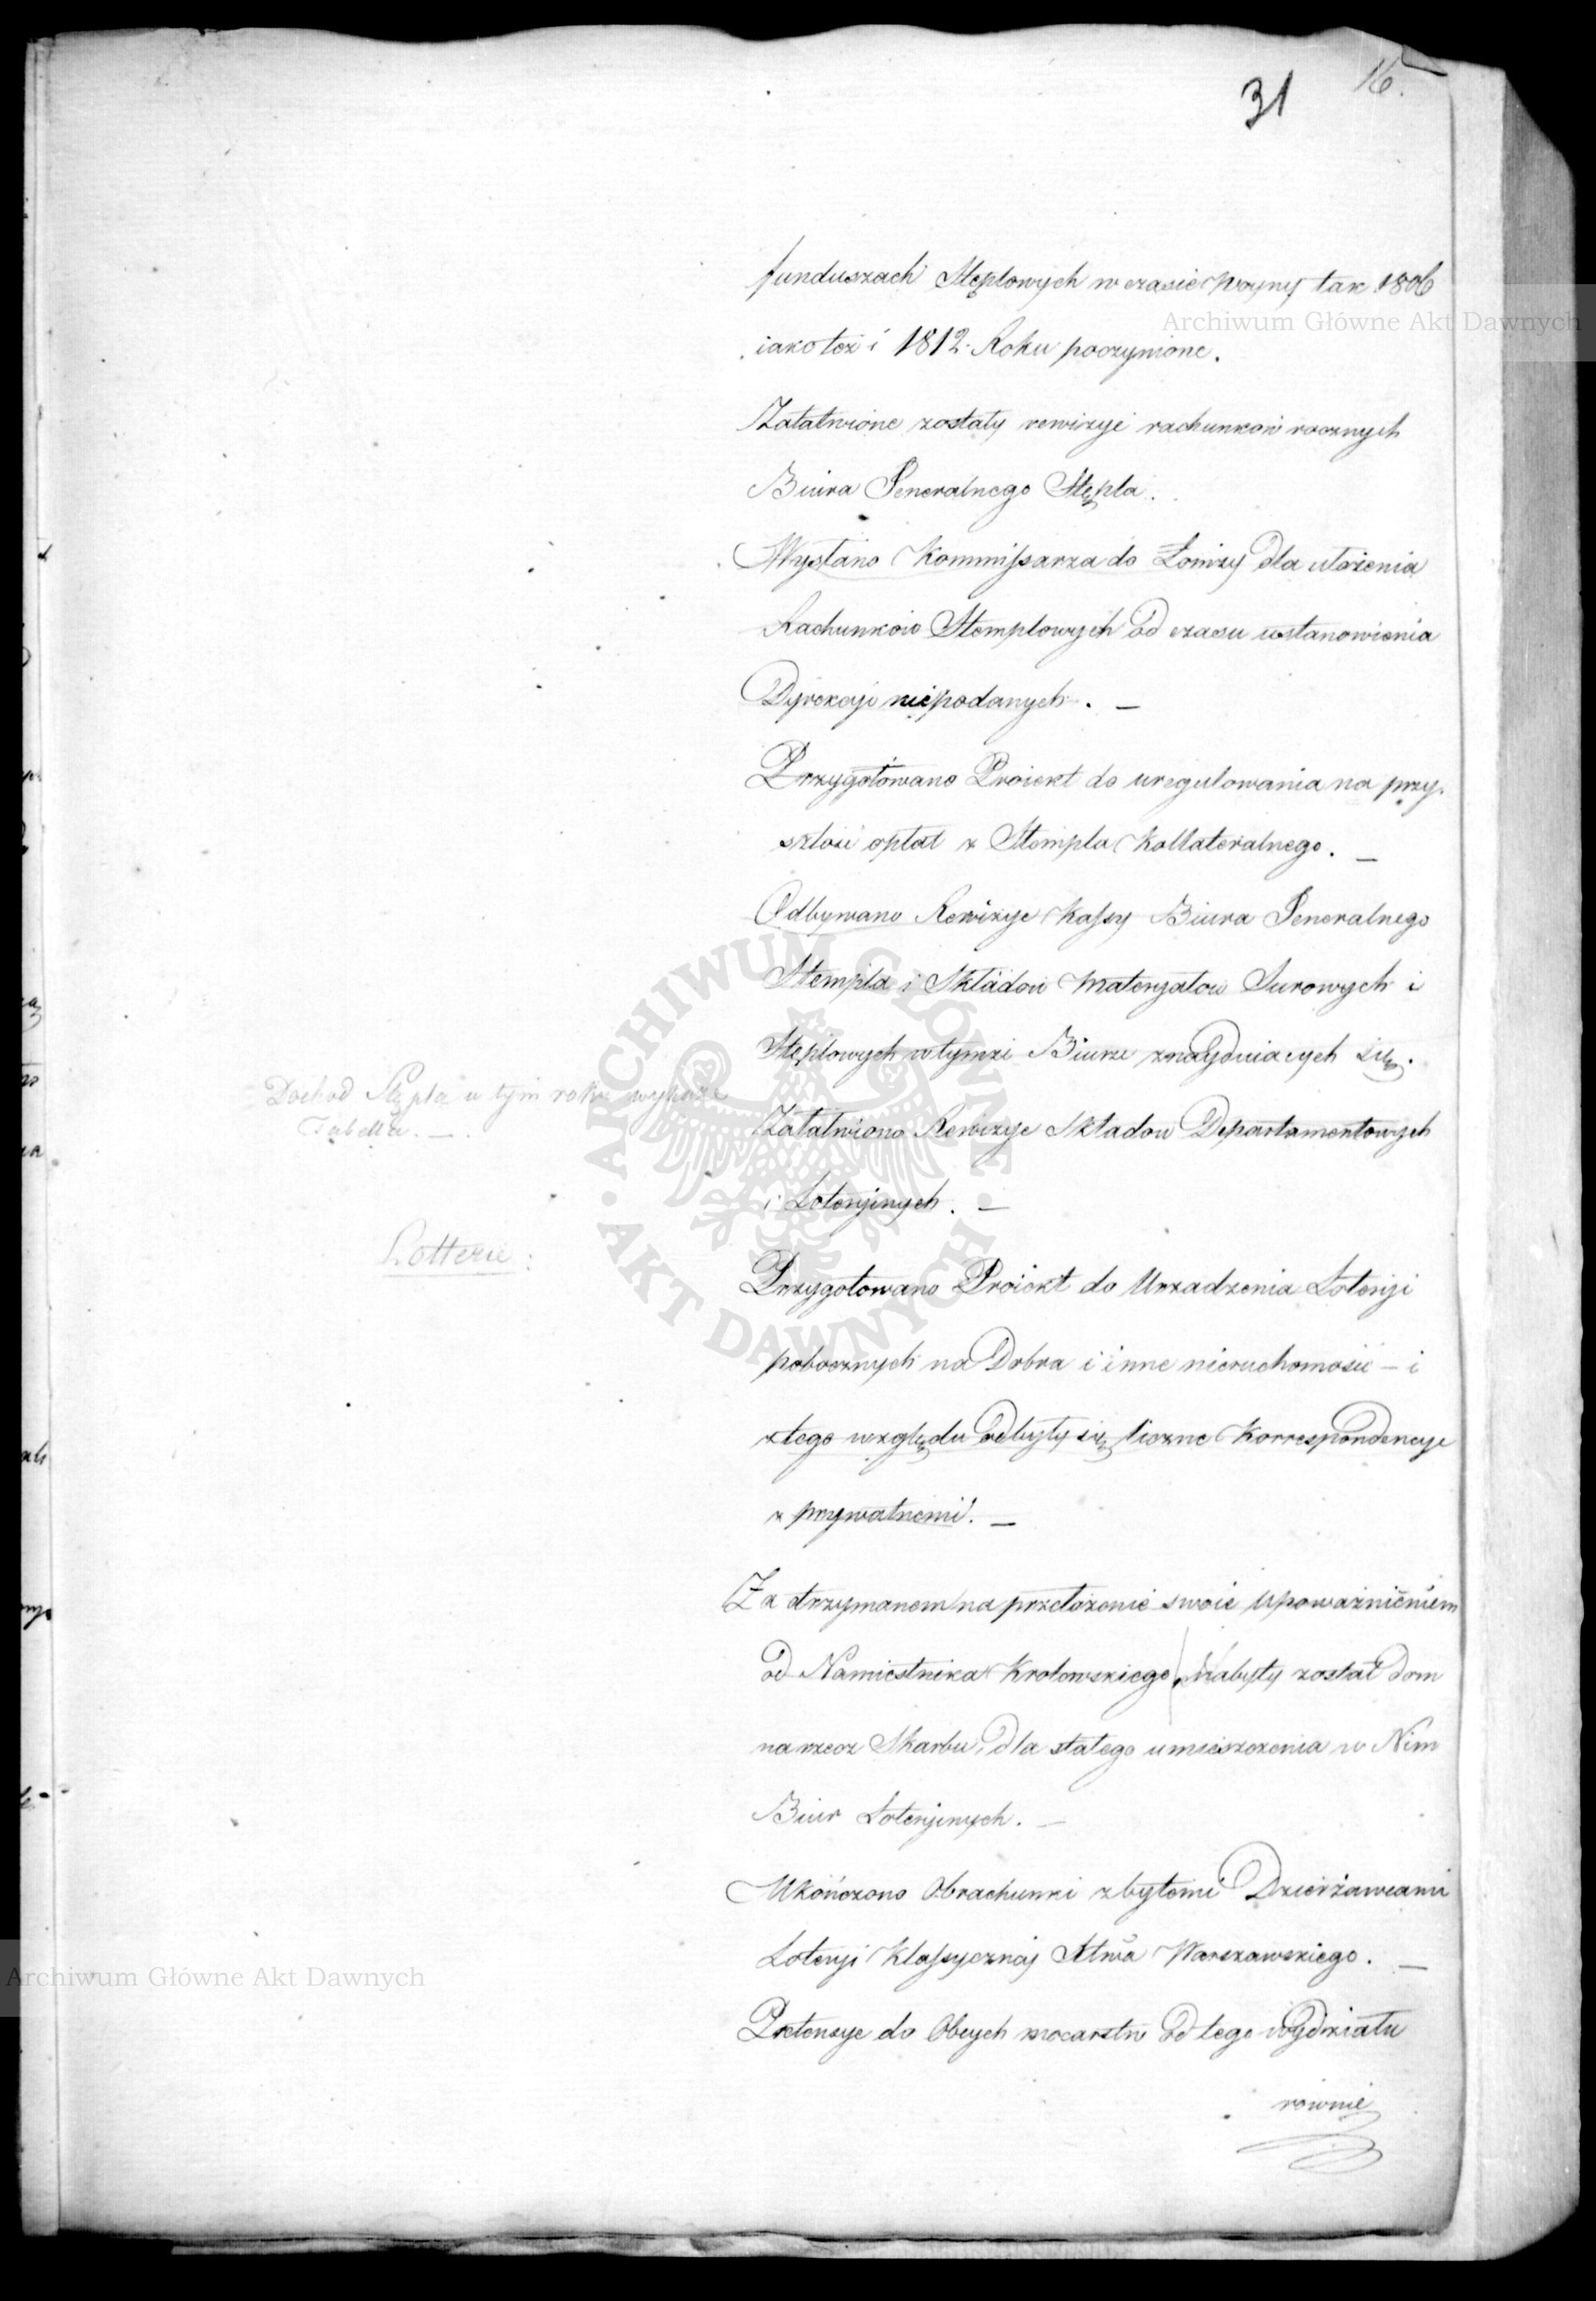 31 16.
funduszach Stęplowych w czasie Woyny tak 1806
iako też i 1812. Roku poczynione.
Załatwione zostały rewizye rachunków rocznych
Biura Generalnego Stępla.
Wysłano Kommissarza do Łomży dla ułożenia
Rachunków Stemplowych od czasu ustanowienia
Dyrekcji niepodanych. —
Przygotowano Proiekt do uregulowania na przy-
szłość opłat z Stempla Kollateralnego. —
Odbywano Rewizye Kassy Biura Generalnego
Stempla i Składów Materyałow Surowych i
Stęplowych w tymże Biurze znayduiących się.
Dochod Stępla w tym roku wykaże
Tabella. —.
Załatwiono Rewizye Składow Departamentowych
i Loteryjnych. —
Lotterie:
Przygotowano Proiekt do Urządzenia Loteryi
pobocznych na Dobra i inne nieruchomości — i
z tego względu odbyły się liczne Korrespondencye
z prywatnemi. —
Za otrzymanem na przełożenie swoie upoważnieniem
od Namiestnika Krolewskiego, Nabyty został dom
na rzecz Skarbu, dla stałego umieszczenia w Nim
Biur Loteryjnych. —
Ukończono Obrachunki z byłemi Dzierżawcami
Loteryi Klassyczney Xtwa Warszawskiego. —
Pretensye do Obcych mocarstw od tego wydziału
równie
Archiwum Główne Akt Dawnych
Archiwum Główne Akt Dawnych
ARCHIWUM GŁÓWNE
AKT DAWNYCH